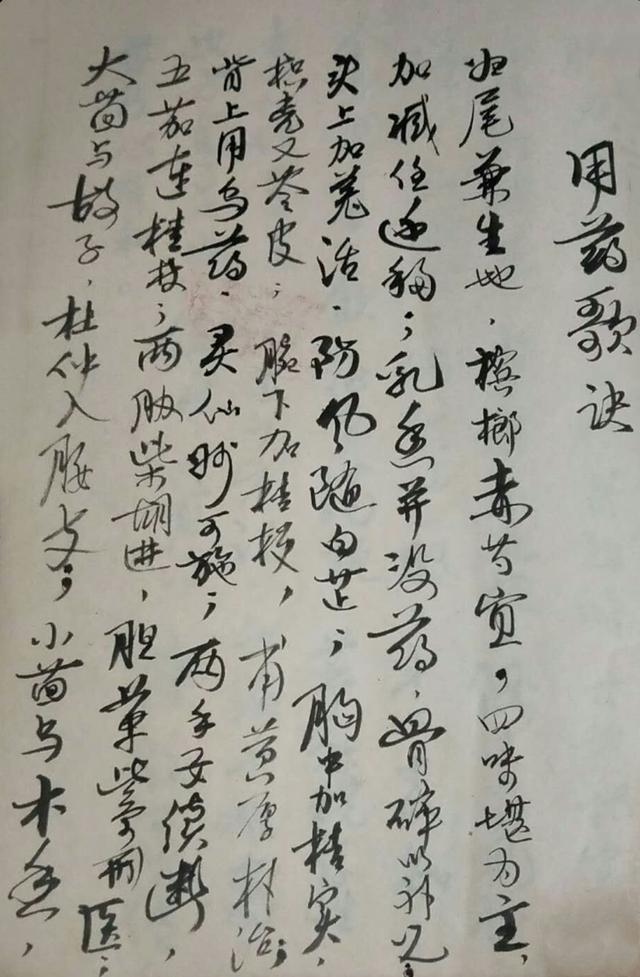 用药歌诀
归尾兼生地，槟榔赤芍宜，四味堪为主，
加减任迁移；乳香并没药，骨碎以补之；
头上加羌活，防风随白芷；胸中加枳实，
枳壳又苓皮；腕下加桔梗，菖厚朴治；
背上用乌药，灵仙妙可施；两手要续断，
五茄连桂枝；两胁柴胡进，胆草紫荆医；
大茴与故子，杜仲入腰支；小茴与木香，